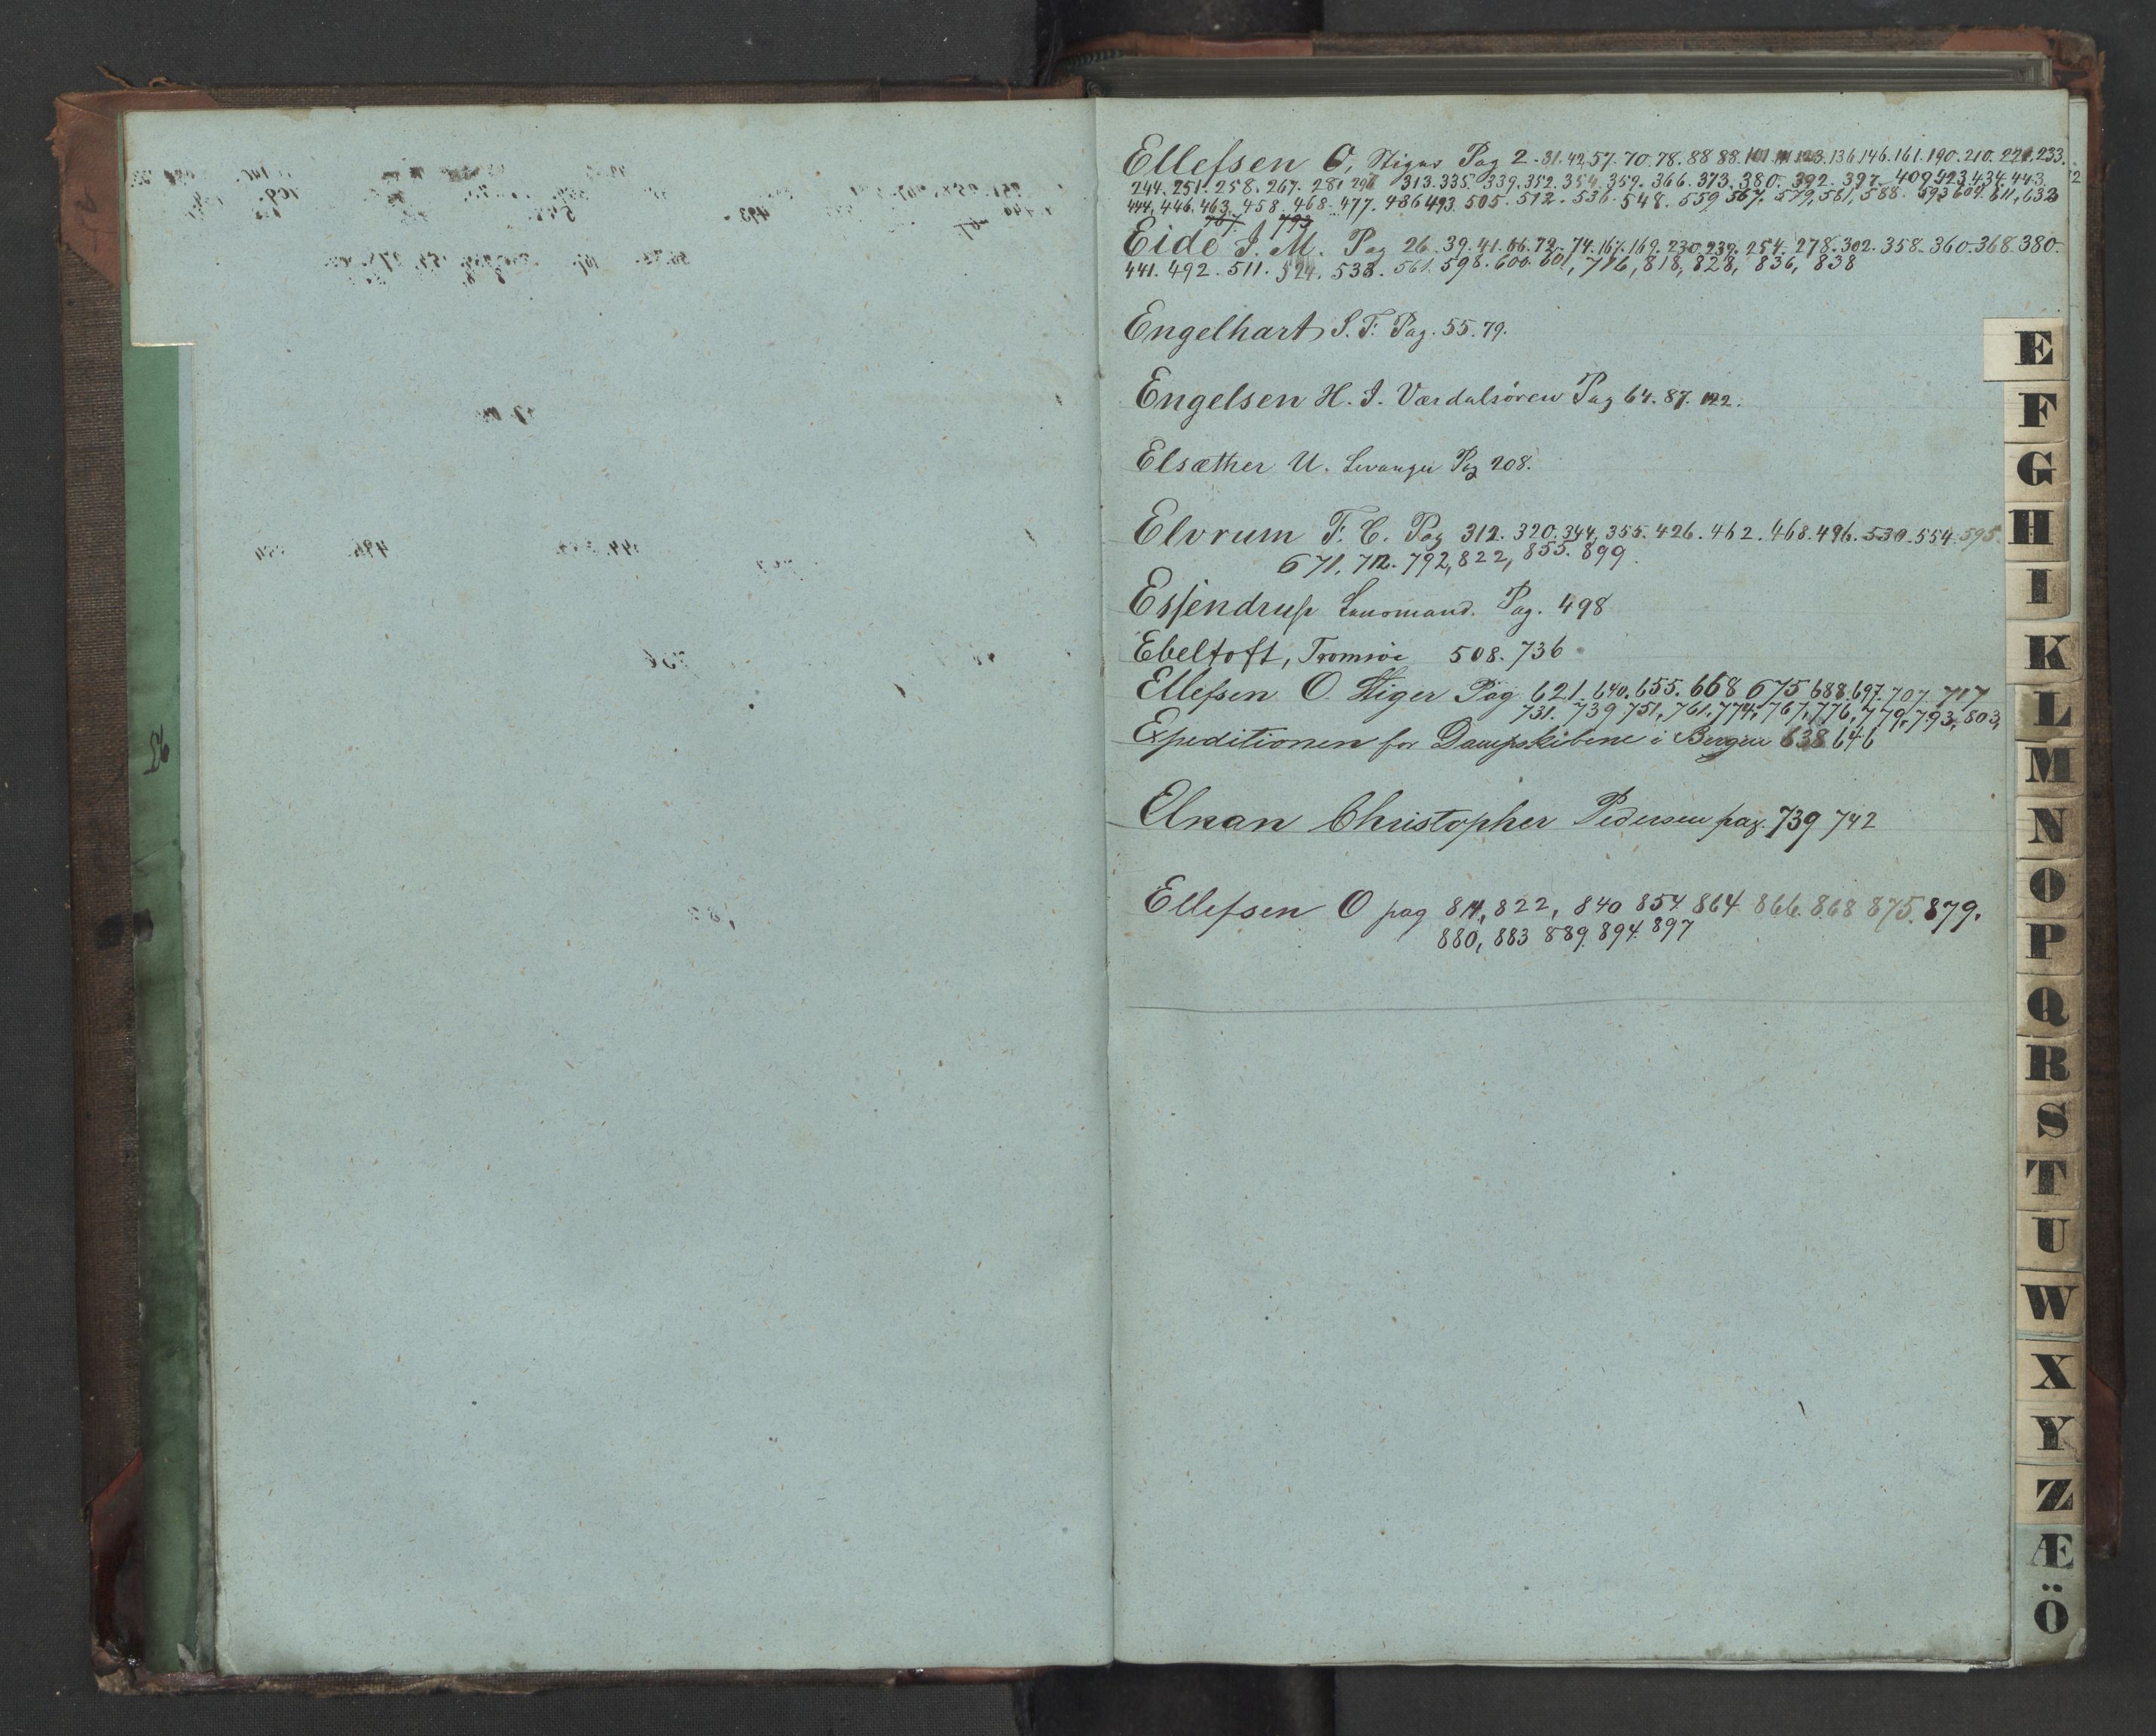 Ellefsen O, Stiger Pag 2. 31. 42. 57. 70. 78. 88 88. 101. 111 123. 136 146. 161. 190. 210. 221. 233.
244. 251. 258. 267. 281 296 313. 335. 339. 352. 354. 359. 366. 373. 380. 392. 397. 409 423. 434. 443.
444. 446. 463. 458. 468. 477. 486 493. 505. 512. 536. 548. 559 567. 579, 561, 588. 593 604. 611, 632
767. 793
Eide J. M. Pag 26. 39. 41. 66. 72. 74. 167. 169. 230. 239. 254. 278. 302. 358. 360. 368. 380.
441. 492. 511. 524. 538. 561. 598. 600. 601, 716, 818, 828, 836, 838
Engelhart S. F. Pag. 55. 79.
Engelsen H. J. Værdalsören Pag 64. 87. 122.
Elsæther U. Levanger Pag 208.
Elvrum F. C. Pag 312. 320. 344. 355. 426. 462. 468. 496. 530. 554. 595.
671. 712. 792, 822, 855. 899
Essendrup Lensmand. Pag. 498
Ebeltoft, Tromsöe 508. 736
Ellefsen O. Stiger Pag 621. 640. 655. 668 675 688. 697. 707. 717
731. 739 751, 761. 774, 767, 776, 779, 793, 803,
Expeditionen for Dampskibene i Bergen 638 646
Elnan Christopher Pedersen pag. 739 742
Ellefsen O pag 814, 822, 840 854 864 866. 868 875. 879.
880, 883 889. 894. 897
E
F
G
H
I
K
L
M
N
O
P
Q
R
S
T
U
W
X
Y
Z
Æ
Ö